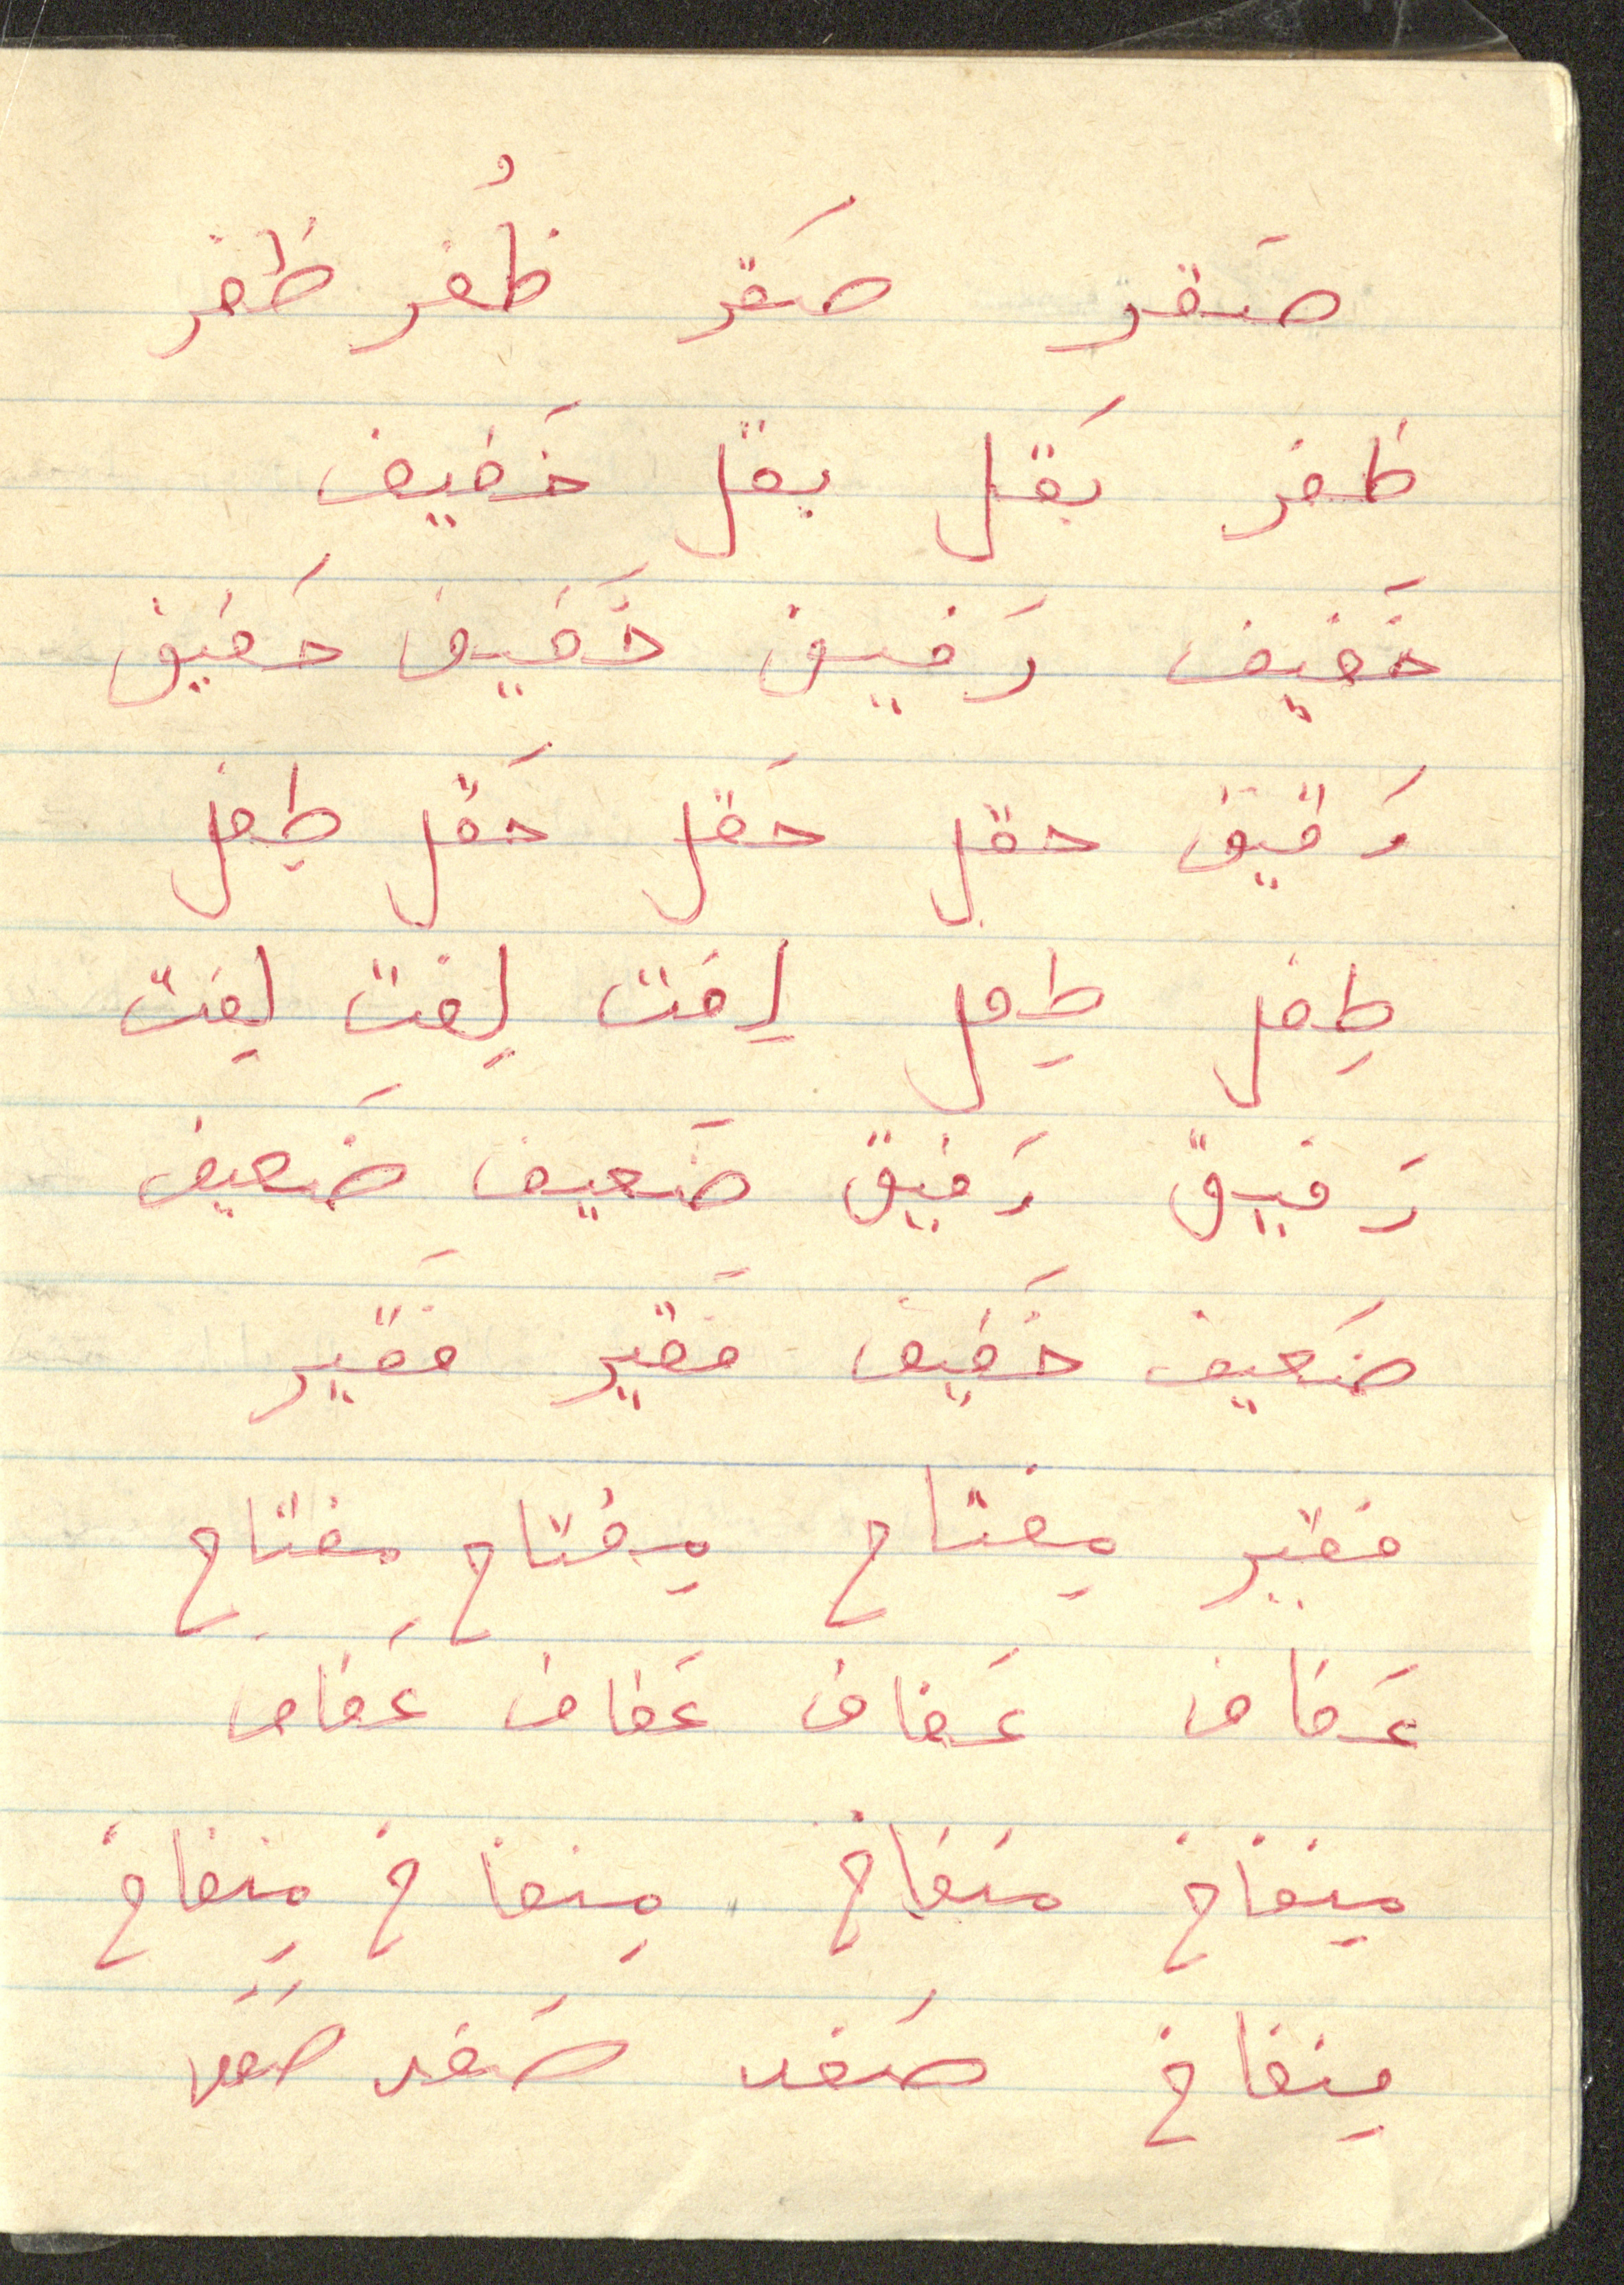 صَقر صَقر ظُفر ظفر
ظفر بَقل بقل خَفيف
خَفيف رَفيق خَفيف خَفيق
رَقيق حقل حَقل حَقل طِفل
طِفل طِفل لِفت لِفت لِفت
رَفيق رَفيق ضَعيف ضَعيف
ضَعيف خَفيف فَقير فَقير
فقير مِفتاح مِفتاح مِفتاح
عَفاف عَفاف عَفاف عَفاف
مِنفاخ منفاخ مِنفاخ مِنفاخ
مِنفاخ صَفد صَفد